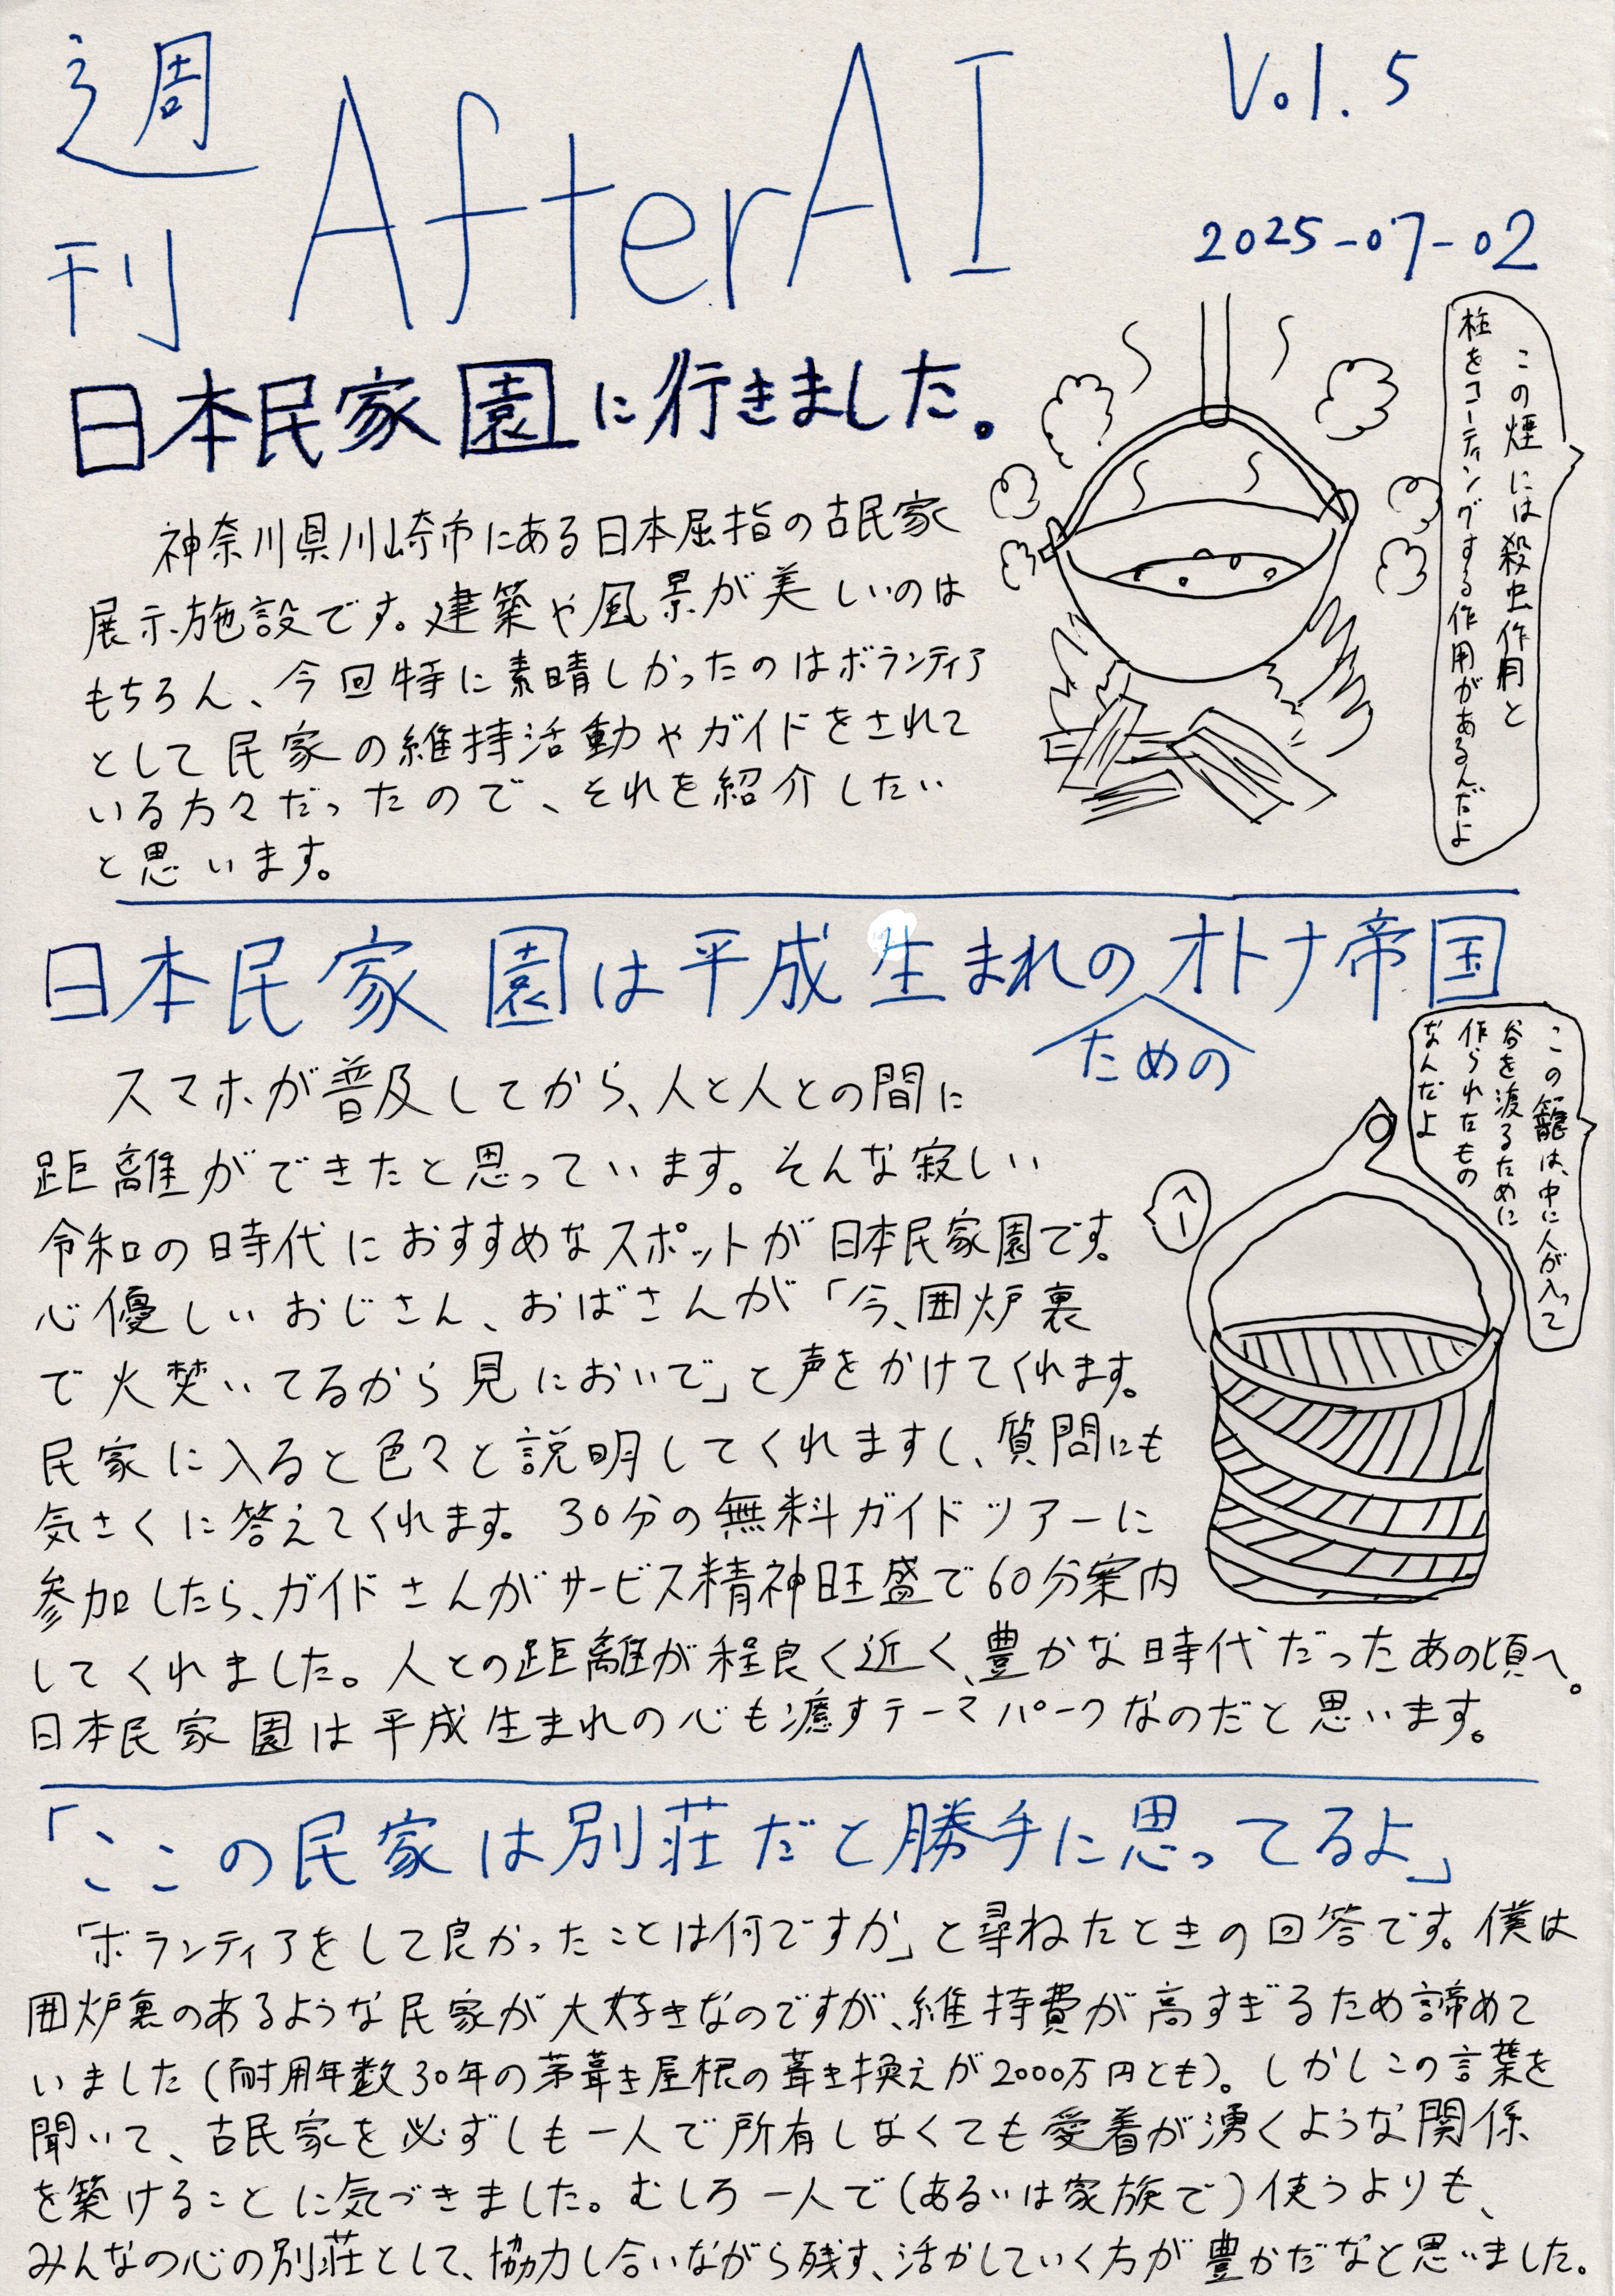 週刊 AfterAI
Vol. 5
2025-07-02
日本民家園に行きました。
この煙には殺虫作用と
柱をコーティングする作用があるんだよ
神奈川県川崎市にある日本屈指の古民家
展示施設です。建築や風景が美しいのは
もちろん、今回特に素晴しかったのはボランティア
として民家の維持活動やガイドをされて
いる方々だったので、それを紹介したい
と思います。
日本民家園は平成生まれのオトナ帝国
ための
この籠は、中に人が入って
谷を渡るために
作られたもの
なんだよ
へー
スマホが普及してから、人と人との間に
距離ができたと思っています。そんな寂しい
令和の時代におすすめなスポットが日本民家園です。
心優しいおじさん、おばさんが「今、囲炉裏
で火焚いてるから見においで」と声をかけてくれます。
民家に入ると色々と説明してくれますし、質問にも
気さくに答えてくれます。30分の無料ガイドツアーに
参加したら、ガイドさんがサービス精神旺盛で60分案内
してくれました。人との距離が程良く近く、豊かな時代だったあの頃へ。
日本民家園は平成生まれの心も癒すテーマパークなのだと思います。
「ここの民家は別荘だと勝手に思ってるよ」
「ボランティアをして良かったことは何ですか」と尋ねたときの回答です。僕は
囲炉裏のあるような民家が大好きなのですが、維持費が高すぎるため諦めて
いました(耐用年数30年の茅葺き屋根の葺き換えが2000万円とも)。しかしこの言葉を
聞いて、古民家を必ずしも一人で所有しなくても愛着が湧くような関係
を築けることに気づきました。むしろ一人で(あるいは家族で)使うよりも、
みんなの心の別荘として、協力し合いながら残す、活かしていく方が豊かだなと思いました。